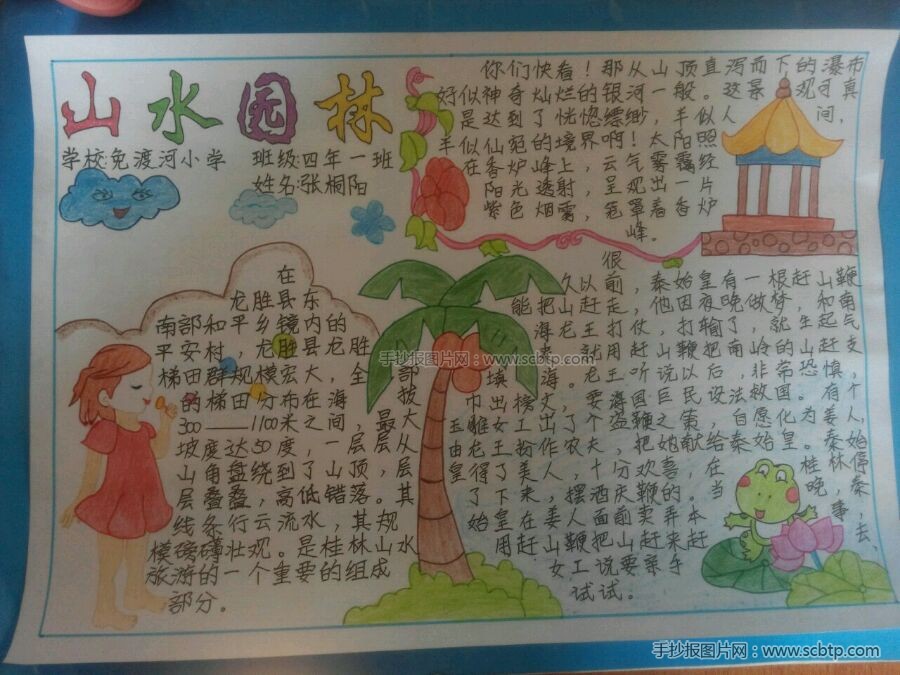 山水园林
学校:免渡河小学 班级:四年一班
姓名:张桐阳
你们快看！那从山顶直泻而下的瀑布
好似神奇灿烂的银河一般。这景观可真
是达到了恍惚缥缈，半似人间，
半似仙宛的境界啊！太阳照
在香炉峰上，云气雾霭经
阳光透射，呈观出一片
紫色烟雾，笼罩着香炉
峰。
在
龙胜县东
南部和平乡镜内的
平安村，龙胜县龙胜
梯田群规模宏大，全部
的梯田分布在海拔
300——1100米之间，最大
坡度达50度，一层层从
山角盘绕到了山顶，层
层叠叠，高低错落。其
线条行云流水，其规
模磅礴壮观。是桂林山水
旅游的一个重要的组成
部分。
很
久以前，秦始皇有一根赶山鞭
能把山赶走，他因夜晚做梦，和南
海龙王打仗，打输了，就生起气
来，就用赶山鞭把南岭的山赶支
填海。龙王听说以后，非常恐慌，
巾出榜文，要海国臣民设法救图。有个
玉雕女工出了个盗鞭之策，自愿化为美人，
由老王扮作农夫，把她献给秦始皇。秦始
皇得了美人，十分欢喜，在桂林停
了下来，摆酒庆鞭的。当晚，秦
始皇在美人面前卖弄本事，
用赶山鞭把山赶来赶去，
女工说要亲手
试试。
手抄报图片网：www.scbtp.com
手抄报图片网：www.scbtp.com